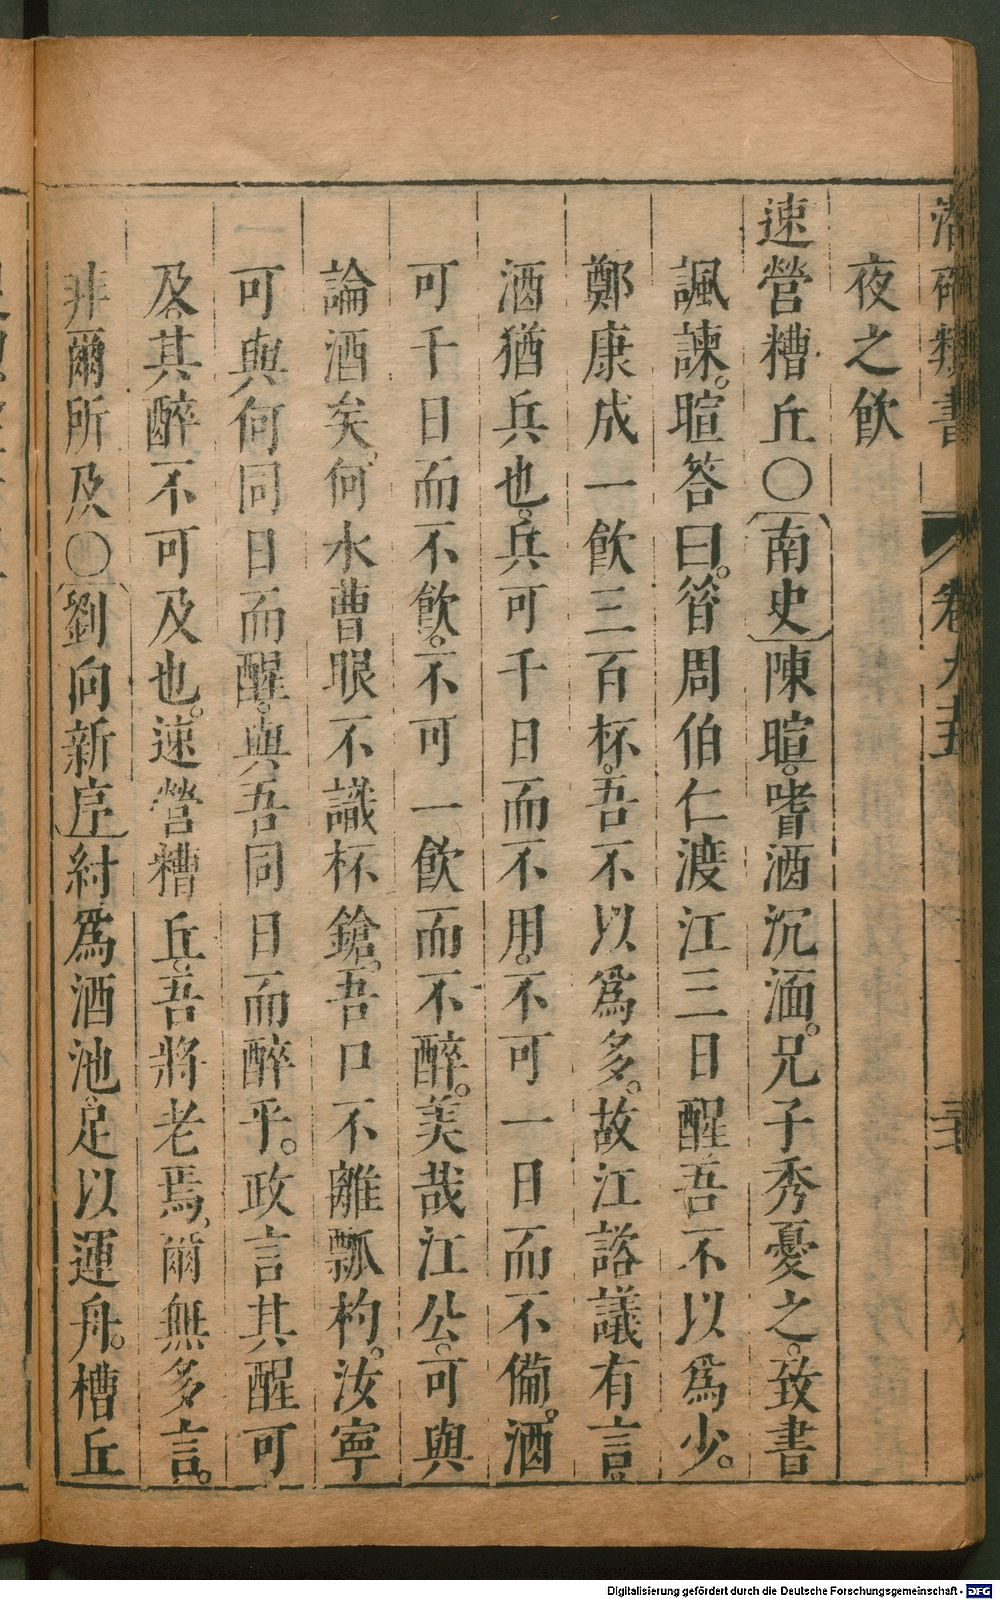 潛確類書 卷九十五
夜之飲
速營糟丘〇南史陳暄。嗜酒沉湎。兄子秀憂之。致書
諷諫。暄答曰。昝周伯仁渡江三日醒吾不以爲少。
鄭康成一飲三百杯。吾不以爲多。故江諮議有言。
酒猶兵也。兵可千日而不用。不可一日而不備。酒
可千日而不飲。不可一飲而不醉。美哉江公。可與
論酒矣。何水曹眼不識杯鎗。吾口不離瓢杓。汝寧
可與何同日而醒。與吾同日而醉乎。政言其醒可
及。其醉不可及也。速營糟丘。吾將老焉。爾無多言。
非爾所及〇劉向新序紂爲酒池。足以運舟。槽丘
Digitalisierung gefördert durch die Deutsche Forschungsgemeinschaft - DFG